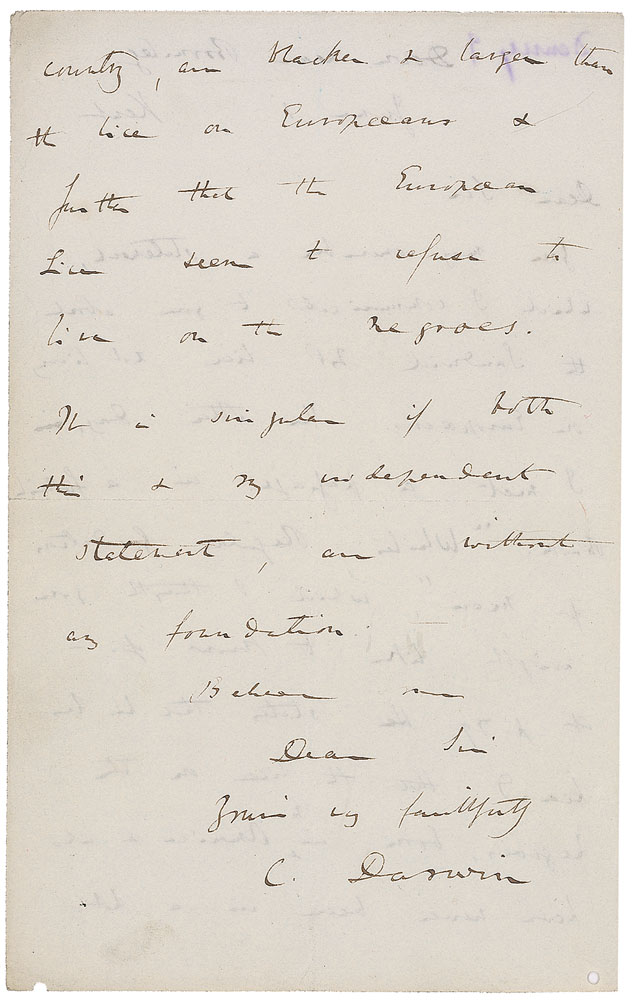 country, are blacker & larger than
the lice on Europæans &
further that the Europæan
Lice seem to refuse to
live on the negroes.
It is singular if both
this & my independent
statement, are without
any foundation.
Believe me
Dear Sir
Yours very faithfully
C. Darwin